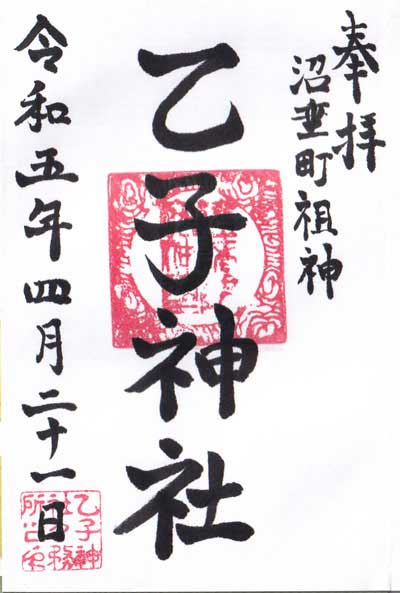 奉拝
沼垂町祖神
乙子神社
令和五年四月二十一日
乙子神
社社務
所之印